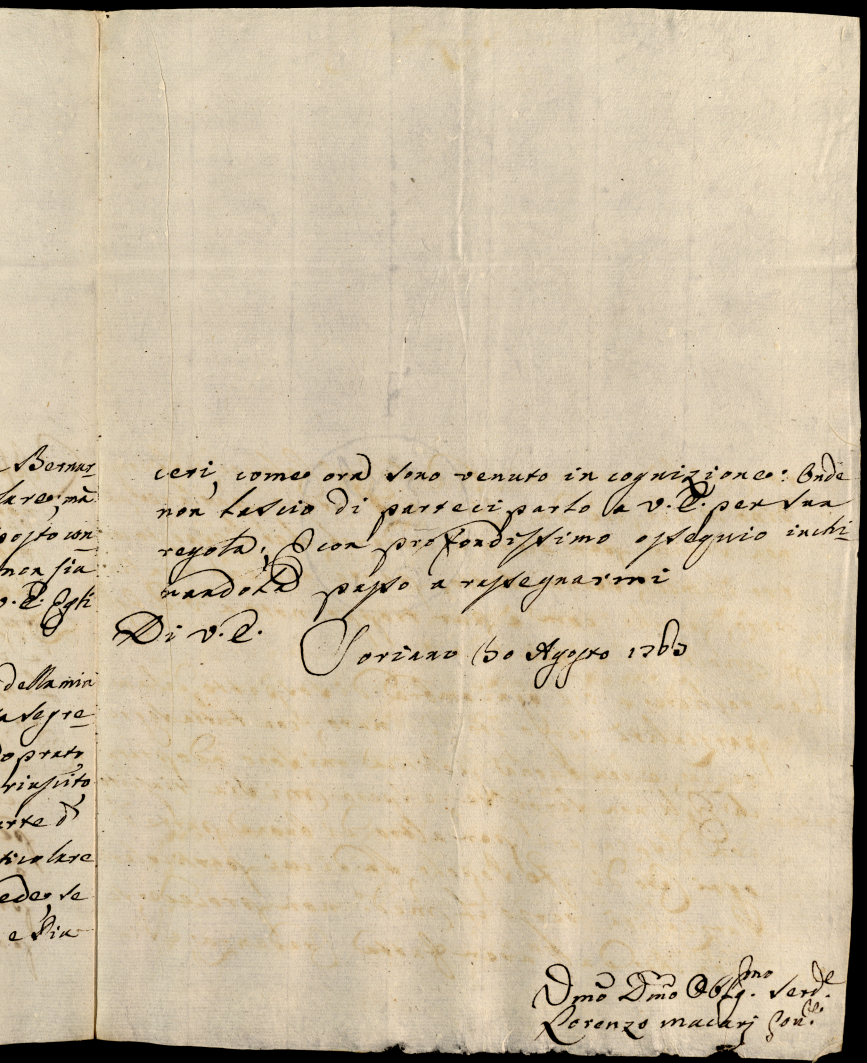 Bernar-
lare, ma
posto con
non sia
v. E. Egli
della mia
a segre-
doprato
riuscito
arte d
ticolare
ede, se
e Dia-
ceri, come ora sono venuto in cognizione: Onde
non lascio di parteciparlo a V. E. per sua
regola, E con profondissimo ossequio inchi-
nandola passo a rassegnarmi
Di V. E.
Soriano 30 Agosto 1763
Dmo Dmo Obblg.mo Serd.e
Lorenzo Macarj